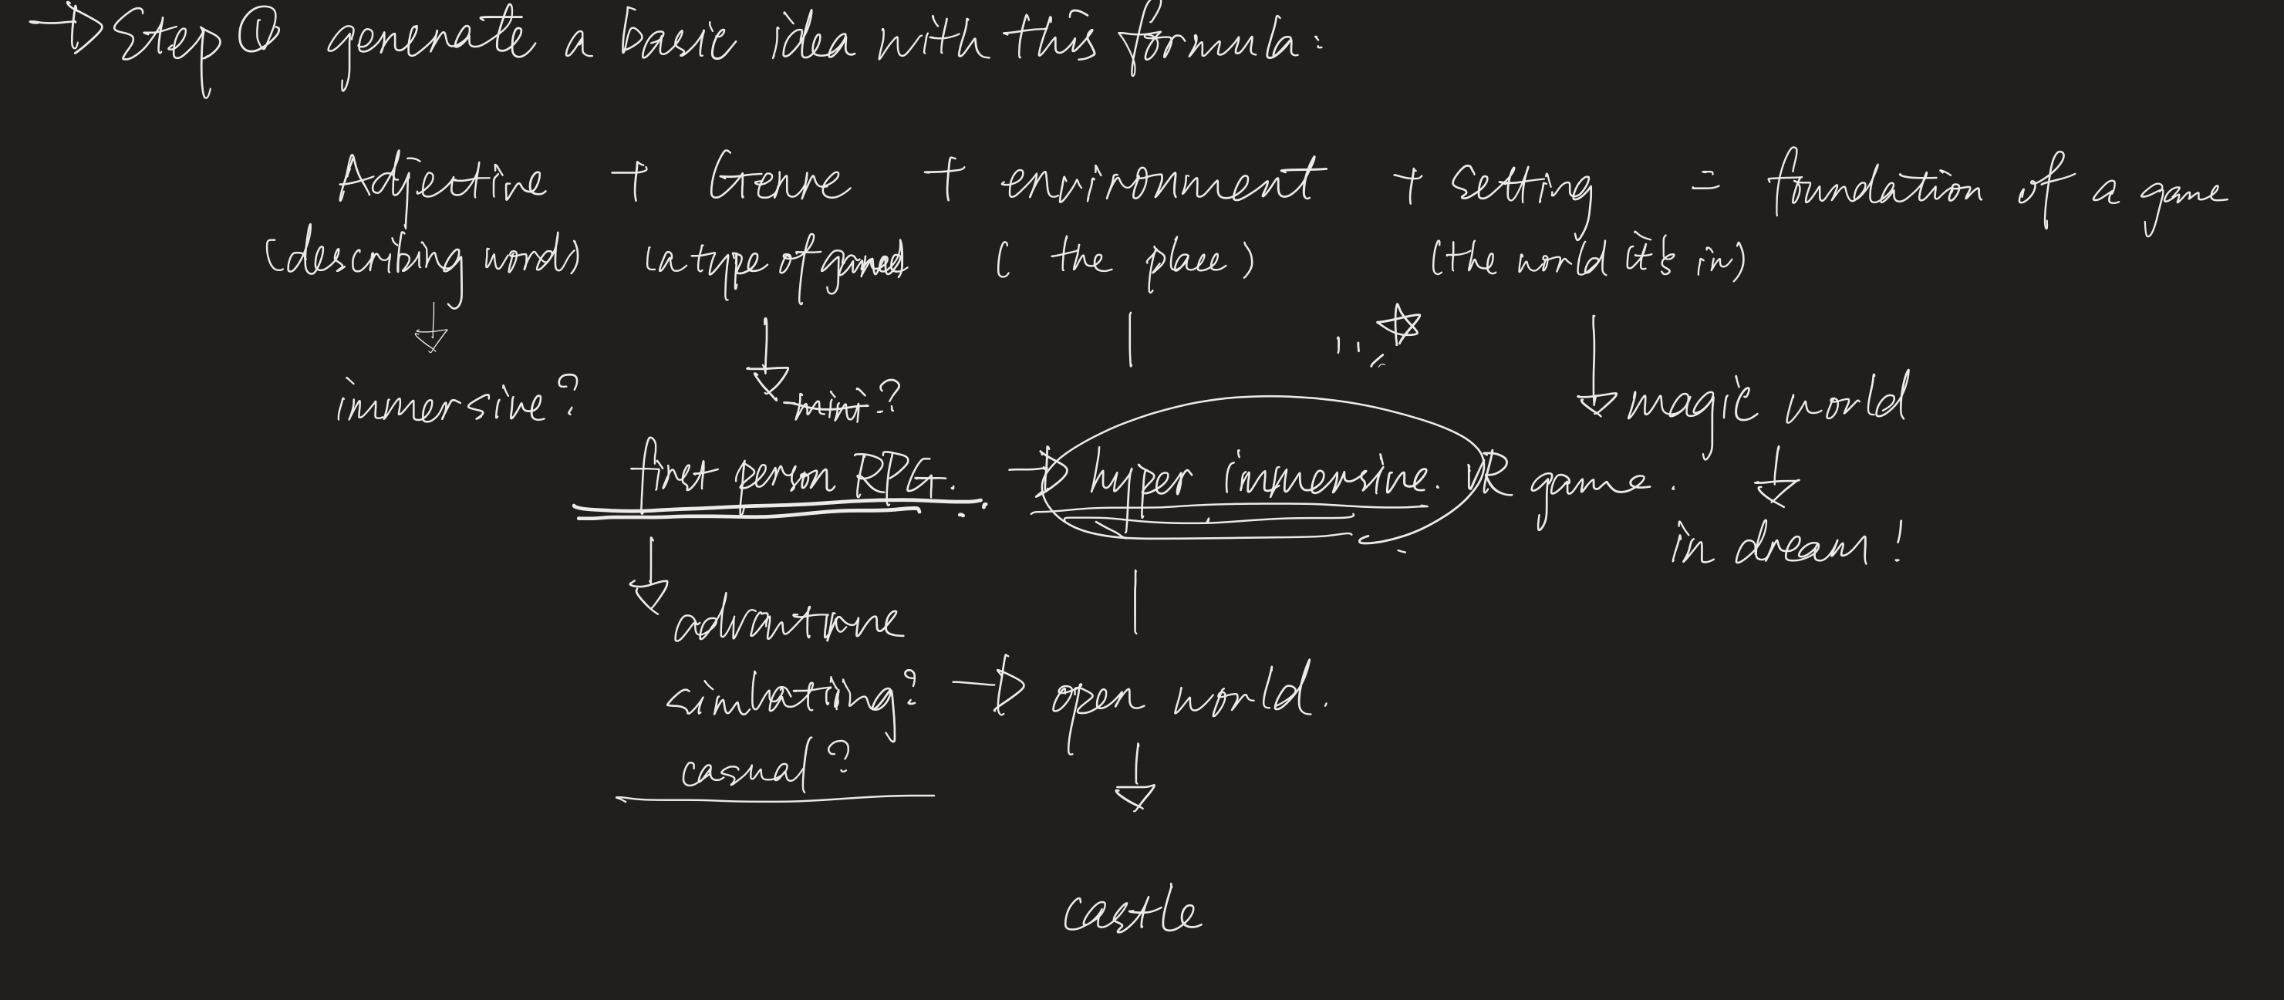 → Step ① generate a basic idea with this formula:
Adjective + Genre + environment + setting = foundation of a game
(describing words) (a type of game) ( the place ) (the world it's in)
immersive? mini? magic world
first person RPG. → hyper immersive. VR game.
in dream!
advantrane
simlating? → open world.
casual?
castle